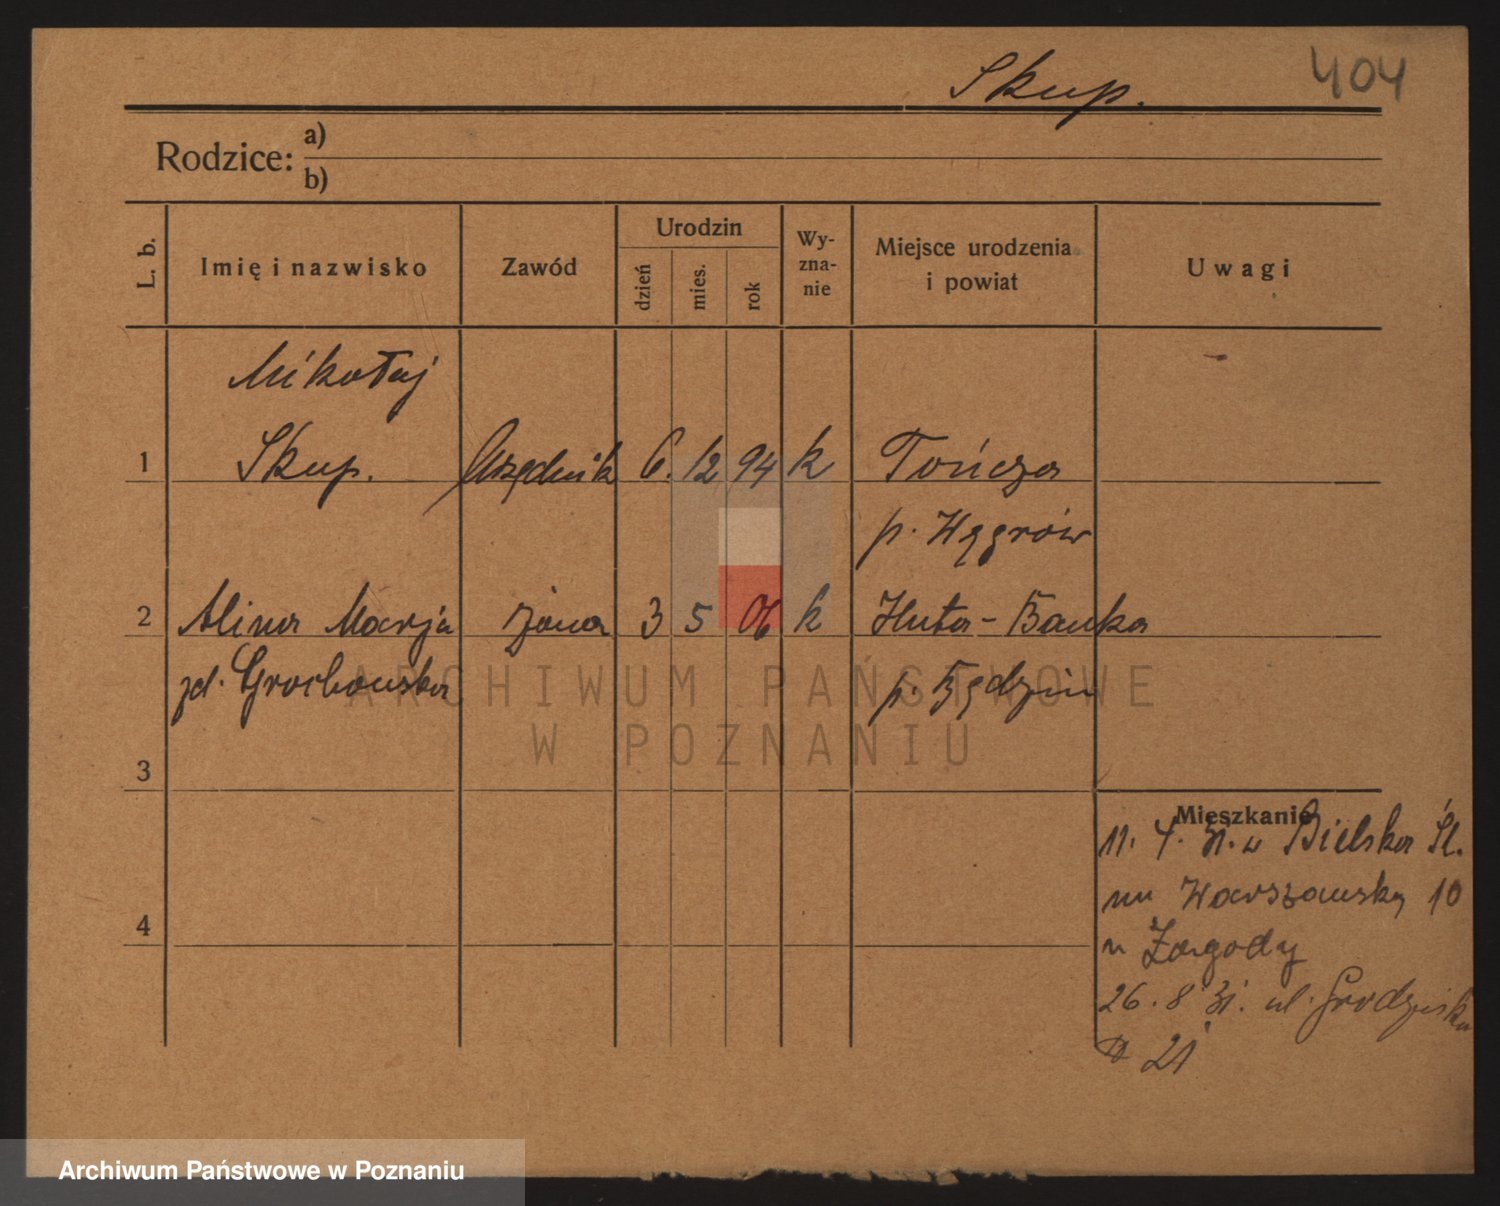 Skup. 404
Rodzice: a)
b)
L. b. Imię i nazwisko Zawód Urodzin dzień mies. rok Wy-zna-nie Miejsce urodzenia i powiat Uwagi
Mikołaj
1 Skup. Urzędnik 6. 12 94 k Tończa
p. Węgrów
2 Alina Marja żona 3 5 06 k Huta-Banka
zd. Grochowska p. Będzin
ARCHIWUM PAŃSTWOWE
W POZNANIU
3
Mieszkanie
11. 4. 31. z Bielska Śl.
na Warszawską 10
u Zagody
4
26. 8 31. ul. Grodziska
21
Archiwum Państwowe w Poznaniu